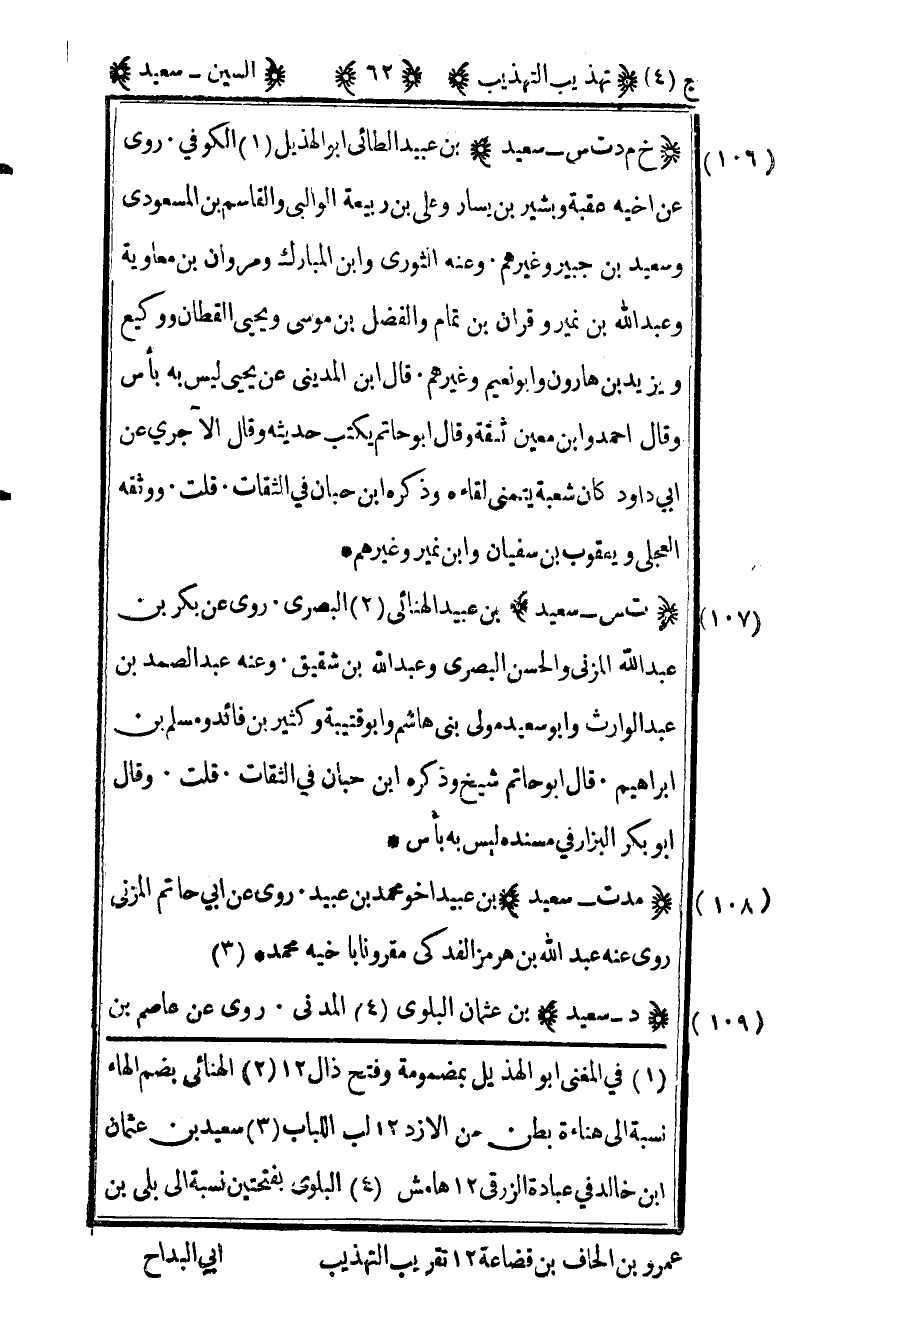 ج (٤) ﴿ تهذيب التهذيب ﴾ ﴿ ٦٢ ﴾ ﴿ السين ــ سعيد ﴾
(١٠٦) ﴿ خ م د ت س ــ سعيد ﴾ بن عبيد الطائى ابو الهذيل (١) الكوفي ٠ روى
عن اخيه عقبة وبشير بن يسار وعلى بن ربيعة الوالبى والقاسم بن المسعودى
وسعيد بن جبير وغيرهم ٠ وعنه الثورى وابن المبارك ومروان بن معاوية
وعبد الله بن نمير و قران بن تمام والفضل بن موسى ويحيى القطان ووكيع
ويزيد بن هارون وابو نعيم وغيرهم ٠ قال ابن المدينى عن يحيى ليس به بأس
وقال احمد وابن معين ثقة وقال ابو حاتم يكتب حديثه وقال الآجري عن
ابي داود كان شعبة يتمنى لقاءه وذكره ابن حبان في الثقات ٠ قلت ٠ ووثقه
العجلى ويعقوب بن سفيان وابن نمير وغيرهم *
(١٠٧) ﴿ ت س ــ سعيد ﴾ بن عبيد الهنائى (٢) البصرى ٠ روى عن بكر بن
عبد الله المزنى والحسن البصرى وعبد الله بن شقيق ٠ وعنه عبد الصمد بن
عبد الوارث وابو سعيد مولى بنى هاشم وابو قتيبة وكثير بن فائد ومسلم بن
ابراهيم ٠ قال ابو حاتم شيخ وذكره ابن حبان في الثقات ٠ قلت ٠ وقال
ابو بكر البزار في مسنده ليس به بأس *
(١٠٨) ﴿ مد ت ــ سعيد ﴾ بن عبيد اخو محمد بن عبيد ٠ روى عن ابي حاتم المزنى
روى عنه عبد الله بن هرمز الفدكى مقرونا باخيه محمد * (٣)
(١٠٩) ﴿ د ــ سعيد ﴾ بن عثمان البلوى (٤) المدنى ٠ روى عن عاصم بن
(١) في المغنى ابو الهذيل بمضمومة وفتح ذال ١٢ (٢) الهنائى بضم الهاء
نسبة الى هناءة بطن من الازد ١٢ لب اللباب (٣) سعيد بن عثمان
ابن خالد في عبادة الزرقى ١٢ هامش (٤) البلوى بفتحتين نسبة الى بلى بن
عمرو بن الحاف بن قضاعة ١٢ تقريب التهذيب ابي البداح